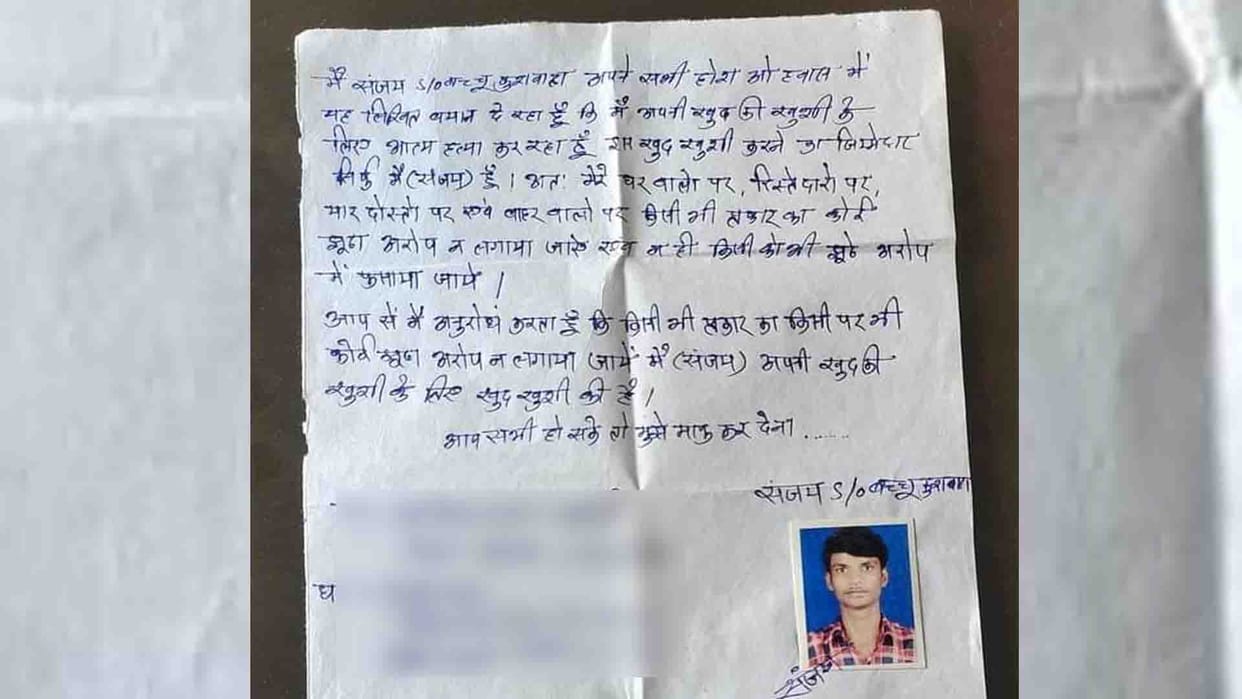 मैं संजय S/o बच्चू कुशवाहा अपने सभी होश ओ हवास में
यह लिखित बयान दे रहा हूँ कि मैं अपनी खुद की खुशी के
लिए आत्म हत्या कर रहा हूँ इस खुद खुशी करने का जिम्मेदार
सिर्फ मैं (संजय) हूँ। अतः मेरे घर वालो पर, रिस्तेदारो पर,
यार दोस्तो पर एवं बाहर वालो पर किसी भी प्रकार का कोई
झूठा अरोप न लगाया जाऐ एवं न ही किसी को भी झूठे अरोप
में फसाया जाये।
आप सें मैं अनुरोध करता हूँ कि किसी भी प्रकार का किसी पर भी
कोई झूठा अरोप न लगाया जायें मैं (संजय) अपनी खुद की
खुशी के लिए खुद खुशी की है।
आप सभी हो सके तो मुझे माफ कर देना ......
संजय S/o बच्चू कुशवाहा
घ
संजय